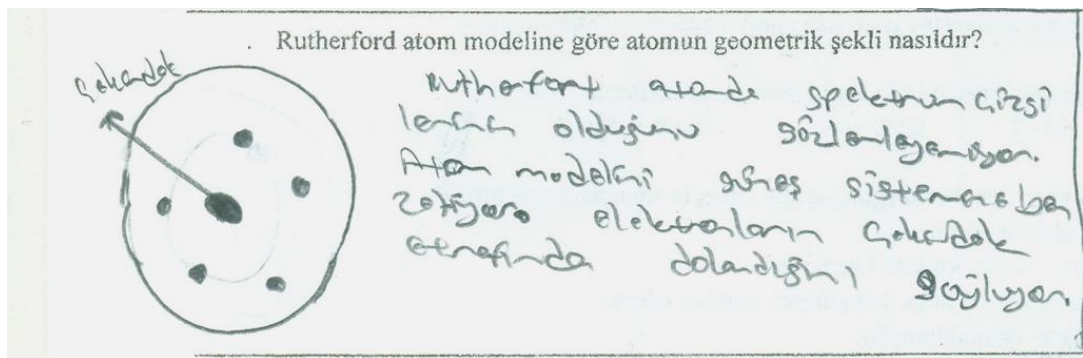 . Rutherford atom modeline göre atomun geometrik şekli nasıldır?
Çekirdek
Rutherfort atomda spektrum çizgi
lerinin olduğunu gözlemleyemiyor.
Atom modelini güneş sistemine ben
zetiyor. elektronların Çekirdek
etrafında dolandığını söylüyor.